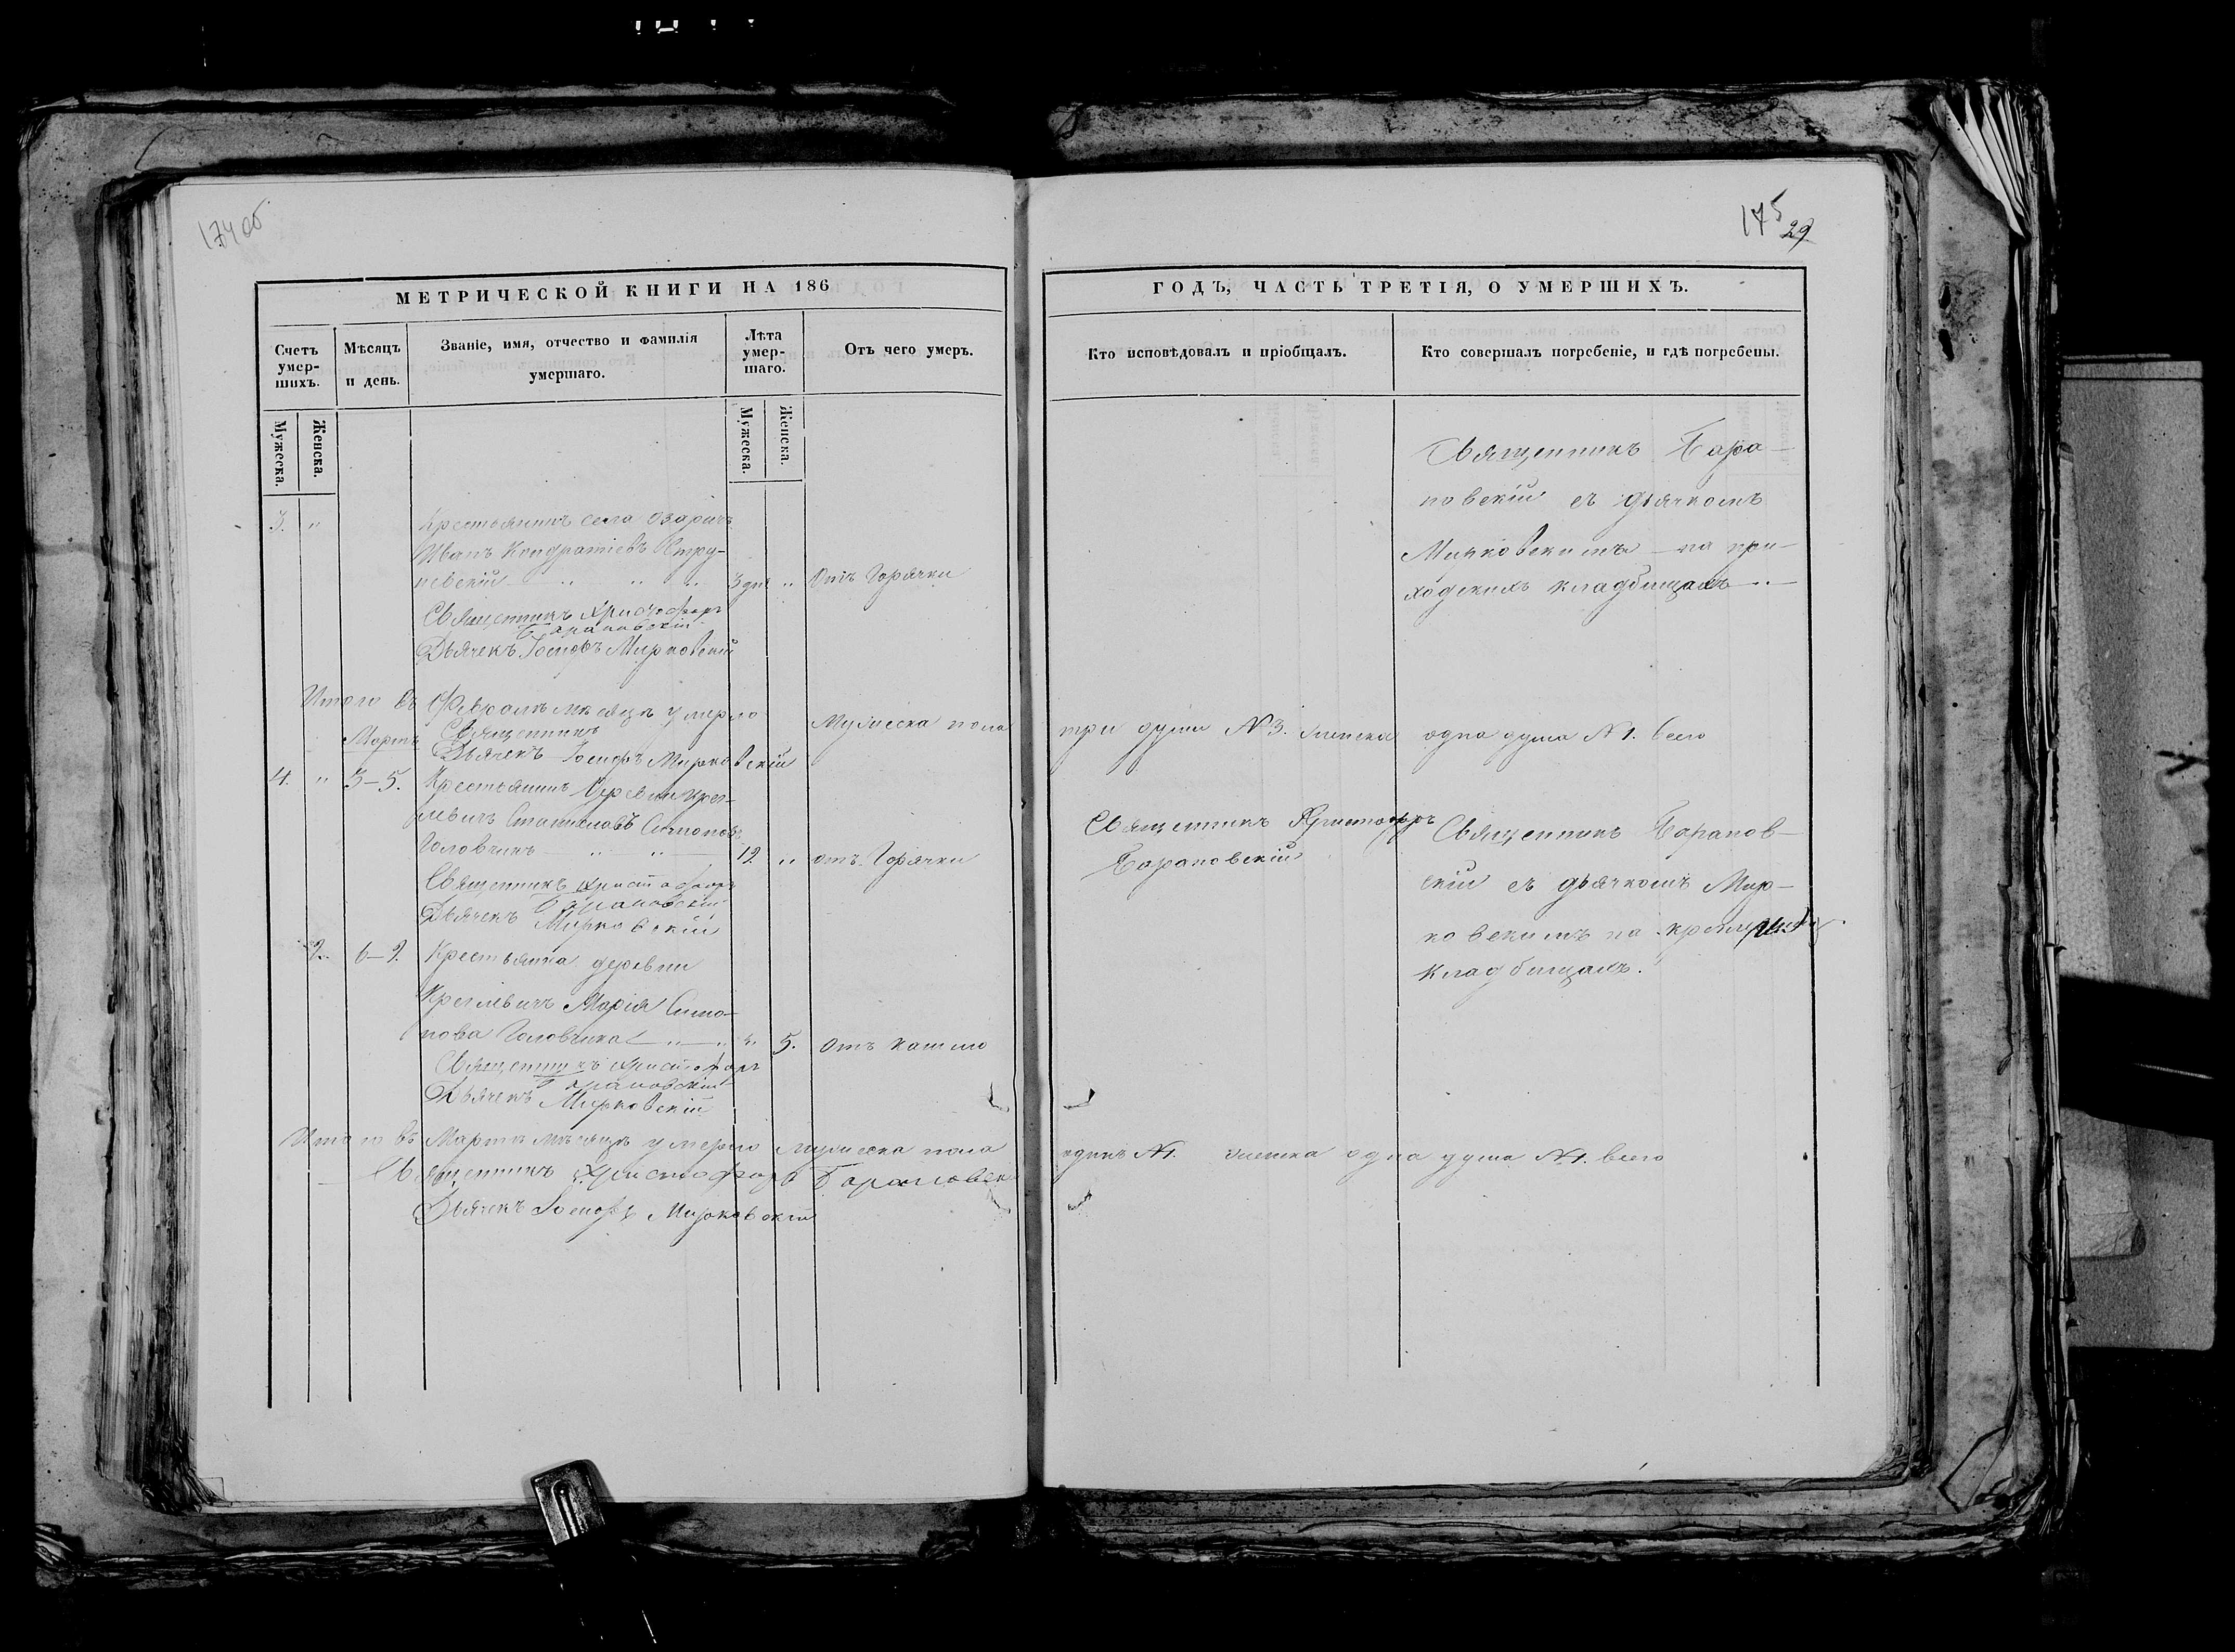 174 об
МЕТРИЧЕСКОЙ КНИГИ НА 186
Счетъ умер-шихъ.
Мѣсяцъ и день.
Званіе, имя, отчество и фамилія умершаго.
Лѣта умер-шаго.
Отъ чего умеръ.
Мужеска.
Женска.
Мужеска.
Женска.
3. " Крестьянинъ села Озаричъ
Иванъ Кондратіевъ Стру-
невскій " " " 3 дня " Отъ Горячки
Священникъ Христофоръ
Барановскій
Дьячекъ Іосифъ Мирковскій
Итого въ Февралѣ мѣсяцѣ умерло Мужеска пола
Мартъ Священникъ
Дьячекъ Іосифъ Мирковскій
4. " 3–5. Крестьянинъ Деревни Крег-
левичъ Станиславъ Симоновъ
Головчикъ " " 12 " отъ Горячки
Священникъ Христофоръ
Барановскій
Дьячекъ Мирковскій
2. 6–9. Крестьянка деревни
Креглевичъ Марія Симо-
нова Головчика " " " 5. Отъ кашлю
Священникъ Христофоръ
Барановскій
Дьячекъ Мирковскій
Итого въ Мартѣ мѣсяцѣ умерло мужеска пола
Священникъ Христофоръ Барановск
Дьячекъ Іосифъ Мирковскій
175
29
ГОДЪ, ЧАСТЬ ТРЕТІЯ, О УМЕРШИХЪ.
Кто исповѣдовалъ и пріобщалъ.
Кто совершалъ погребеніе, и гдѣ погребены.
Священникъ Бара-
новскій съ дьячкомъ
Мирковскимъ на при-
ходскихъ кладбищахъ "
три души №3. женска одна душа №1. всего
Священникъ Христофоръ
Барановскій
Священникъ Баранов-
скій съ дьячкомъ Мир-
ковскимъ на
кладбищахъ.
одинъ №1. женска одна душа №1. всего